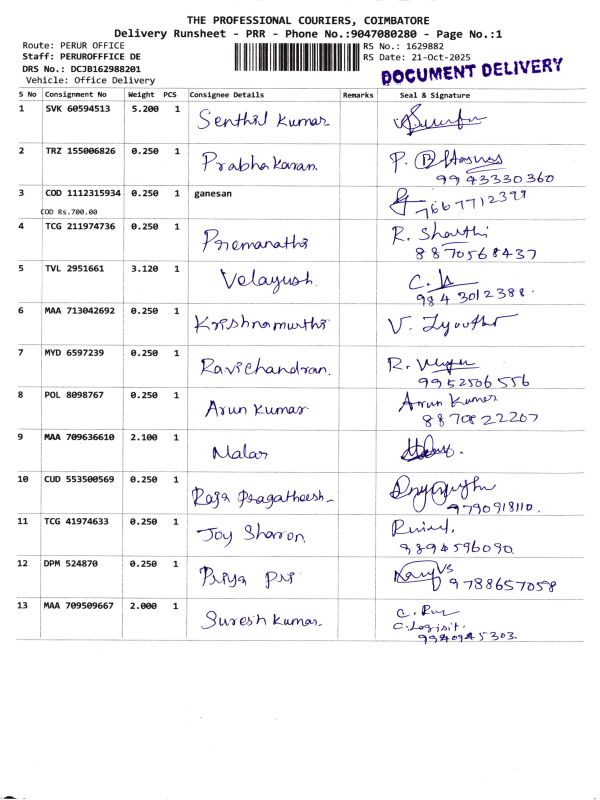 THE PROFESSIONAL COURIERS, COIMBATORE
Delivery Runsheet - PRR - Phone No.:9047080280 - Page No.:1
Route: PERUR OFFICE
RS No.: 1629882
Staff: PERUROFFFICE DE
RS Date: 21-Oct-2025
DRS No.: DCJB162988201
Vehicle: Office Delivery
DOCUMENT DELIVERY
S No Consignment No Weight PCS Consignee Details Remarks Seal & Signature
1 SVK 60594513 5.200 1 Senthil Kumar
2 TRZ 155006826 0.250 1 Prabhakaran P.
9943330360
3 COD 1112315934 0.250 1 ganesan
COD Rs.700.00
4 TCG 211974736 0.250 1 Premanathi R.
8870568437
5 TVL 2951661 3.120 1 Velayush. C.
9843012388.
6 MAA 713042692 0.250 1 Krishnamurthi V.
7 MYD 6597239 0.250 1 Ravichandran. R.
9952506556
8 POL 8098767 0.250 1 Arun Kumar Arun Kumar
8870822207
9 MAA 709636610 2.100 1 Malar
10 CUD 553500569 0.250 1 Raja Pragatheesh
9790918110.
11 TCG 41974633 0.250 1 Joy Sharon
9894596090.
12 DPM 524870 0.250 1 Priya pri
9788657058
13 MAA 709509667 2.000 1 Suresh Kumar C.
C.Logisit.
9940945303.